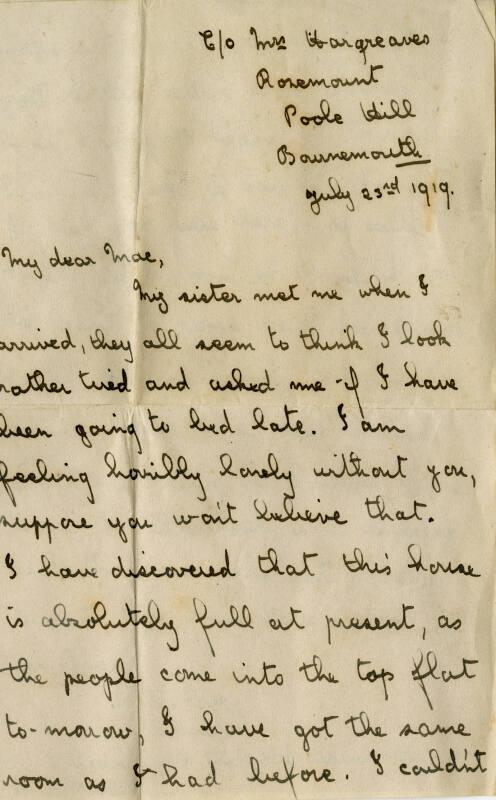 C/o Mrs Hargreaves
Rosemount
Poole Hill
Bournemouth
July 23rd 1919.
My dear Mac,
My sister met me when I
arrived, they all seem to think I look
rather tired and asked me if I have
been going to bed late. I am
feeling horribly lonely without you,
suppose you won't believe that.
I have discovered that this house
is absolutely full at present, as
the people come into the top flat
to-morrow, I have got the same
room as I had before. I couldn't